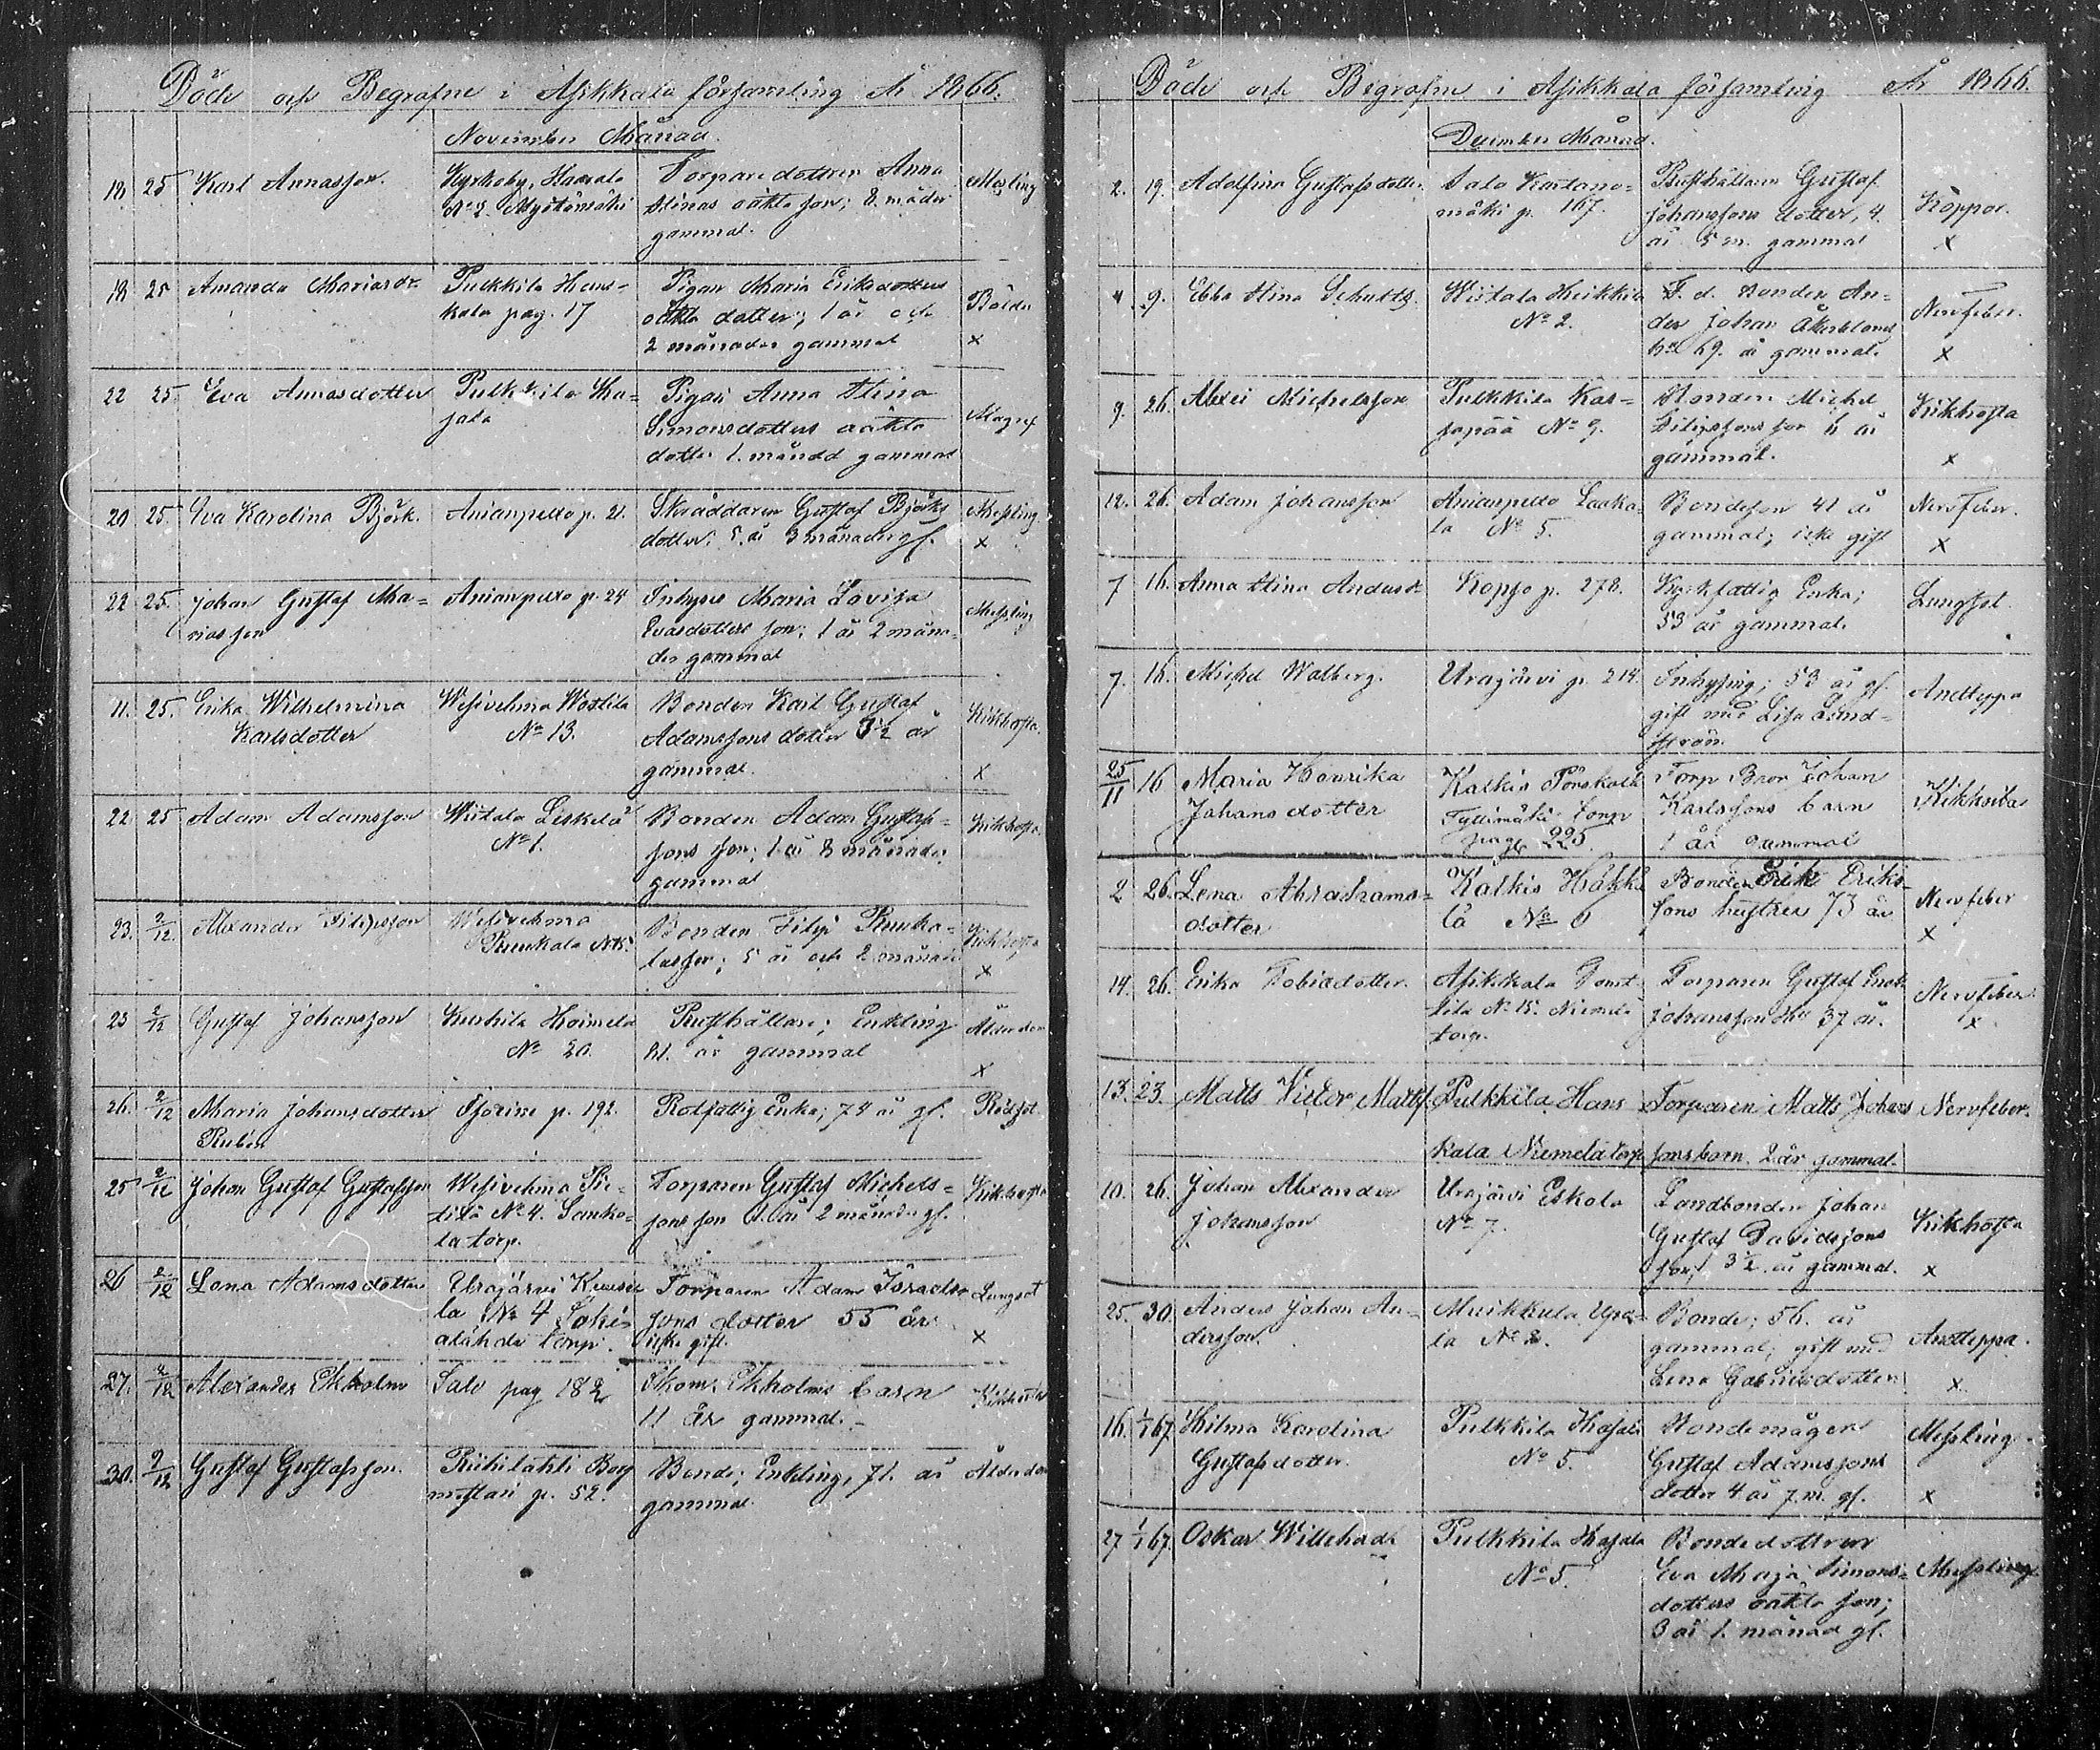 Döde och Begrafne i Asikkala församling År 1866.
November Månad.
18 25 Karl Annasson. Kyrkoby, Haarala Torparedottren Anna Mesling
No 2. Stinas oäkta son; 8 måder
gammal.
18 25 Amanda Mariasdr Pulkkila Hans= Pigan Maria Eriksdotters Bölder
kala pag. 17 oäkta dotter; 1 år och
2 månader gammal x
22 25 Eva Annasdotter Pulkkila Ha= Pigan Anna Stina Magref
jala Simonsdotters oäkta
dotter 1. månad gammal
20 25. Eva Karolina Björk. Anianpelto p. 21. Skräddaren Gustaf Björks Messling
dotter; 5. år 3 månader gl. x
22 25. Johan Gustaf Ma= Anianpelto p. 24 Inhyses Maria Lovisa Messling
riasson Evasdotters son; 1 år 2 måna=
der gammal
11. 25. Erika Wilhelmina Wesivehma Bonden Karl Gustaf Kikhosta.
Karlsdotter No 13. Adamssons dotter 3½ år
gammal. x
22 25 Adam Adamsson Wiitala Leskelä Bonden Adam Gustafs= Kikhosta
No 1. sons son; 1 år 8 månader
gammal
23. 2/12. Alexander Filipsson Wesivehma Bonden Filip Ruuka= Kikhosta
No 5. las son; 5 år och 2 månader
x
23 2/12 Gustaf Johansson Kurhila Heimela Rusthållare; Enkling Ålderdom
No 20. 81. år gammal
x
26. 2/12 Maria Johansdotter p. 192. Rotfattig Enka; 74 år gl. Rödsot
Rubin
25 2/12 Johan Gustaf Gustafsson Wesivehma Pie= Torparen Gustaf Michels= Kikhosta
tilä No 4. sons son 1 år 2 månader gl.
la torp.
26 2/12 Lena Adamsdotter Urajärvi Torparen Adam Israels= Lungsot
la No 4 sons dotter 55 år
torp. icke gift. x
27. 2/12 Alexander Ekholm Salo pag 182 Skom. Ekholms barn
11 år gammal.
30. 2/12 Gustaf Gustafsson. Riihilahti Borg Bonde; Enkling, 71. år Ålderdom
mästari p. 52. gammal
Döde och Begrafne i Asikkala församling År 1866.
December Månad.
2. 19. Adolfina Gustafsdotter Salo Kartano= Rusthållaren Gustaf Koppor.
mäki p. 167. Johanssons dotter, 4.
år 5 m. gammal x
4 9. Ebba Stina Schultz. Wiitala Heikkilä F. d. Bonden An= Nervfeber.
No 2. ders Johan Åkerbloms
hu 69. år gammal. x
9. 26. Alexei Michelsson Pulkkila Kar= Bonden Michel Kikhosta
japää No 9. Filipssons son 6 år
gammal. x
12. 26. Adam Johansson Anianpelto Laaka= Bondeson 41 år Nervfeber.
la No 5. gammal; icke gift x
7 16. Anna Stina Andersdr Kopso p. 278. Kyrkfattig Enka; Lungsot.
53 år gammal.
7. 16. Michel Walberg. Urajärvi p. 214. Inhysing; 53 år gl. Andteppa
gift med Lisa Lind=
ström.
25/11 16 Maria Henrika Kalkis Torp. Bror Johan Kikhosta
Johansdotter torp Karlssons barn
pag. 225. 1 år gammal
2 26. Lena Abrahams= Kalkis Häkki Bonden Erik Eriks= Nervfeber
dotter lä No 6 sons hustru 73 år x
14. 26. Erika Tobiadotter. Asikkala Tomt Torparen Gustaf Nervfeber
tila No 15. Niemelä Johansson hu 37 år. x
torp.
13. 23. Matts Victor Mattss. Pulkkila Hans Torparen Matts Johans Nervfeber.
kala Niemelä torp sons barn. 2 år gammal.
10. 26. Johan Alexander Urajärvi Eskola Landbonden Johan Kikhosta
Johansson No 7. Gustaf Davidssons
son, 3½. år gammal. x
25. 30. Anders Johan An= Muikkula Bonde; 56. år Andteppa.
dersson. la No 2. gammal; gift med
Lena Gabrielsdotter x
16. 1/1 67. Hilma Karolina Pulkkila Hajala Bondemågen Messling
Gustafsdotter. No 5. Gustaf Adamssons
dotter 4 år 7. m. gl. x
27 1/1 67. Oskar Willehad Pulkkila Hajala Bondedottren
No 5. Eva Maja Simons= Messling
dotters oäkta son;
3 år 1. månad gl.